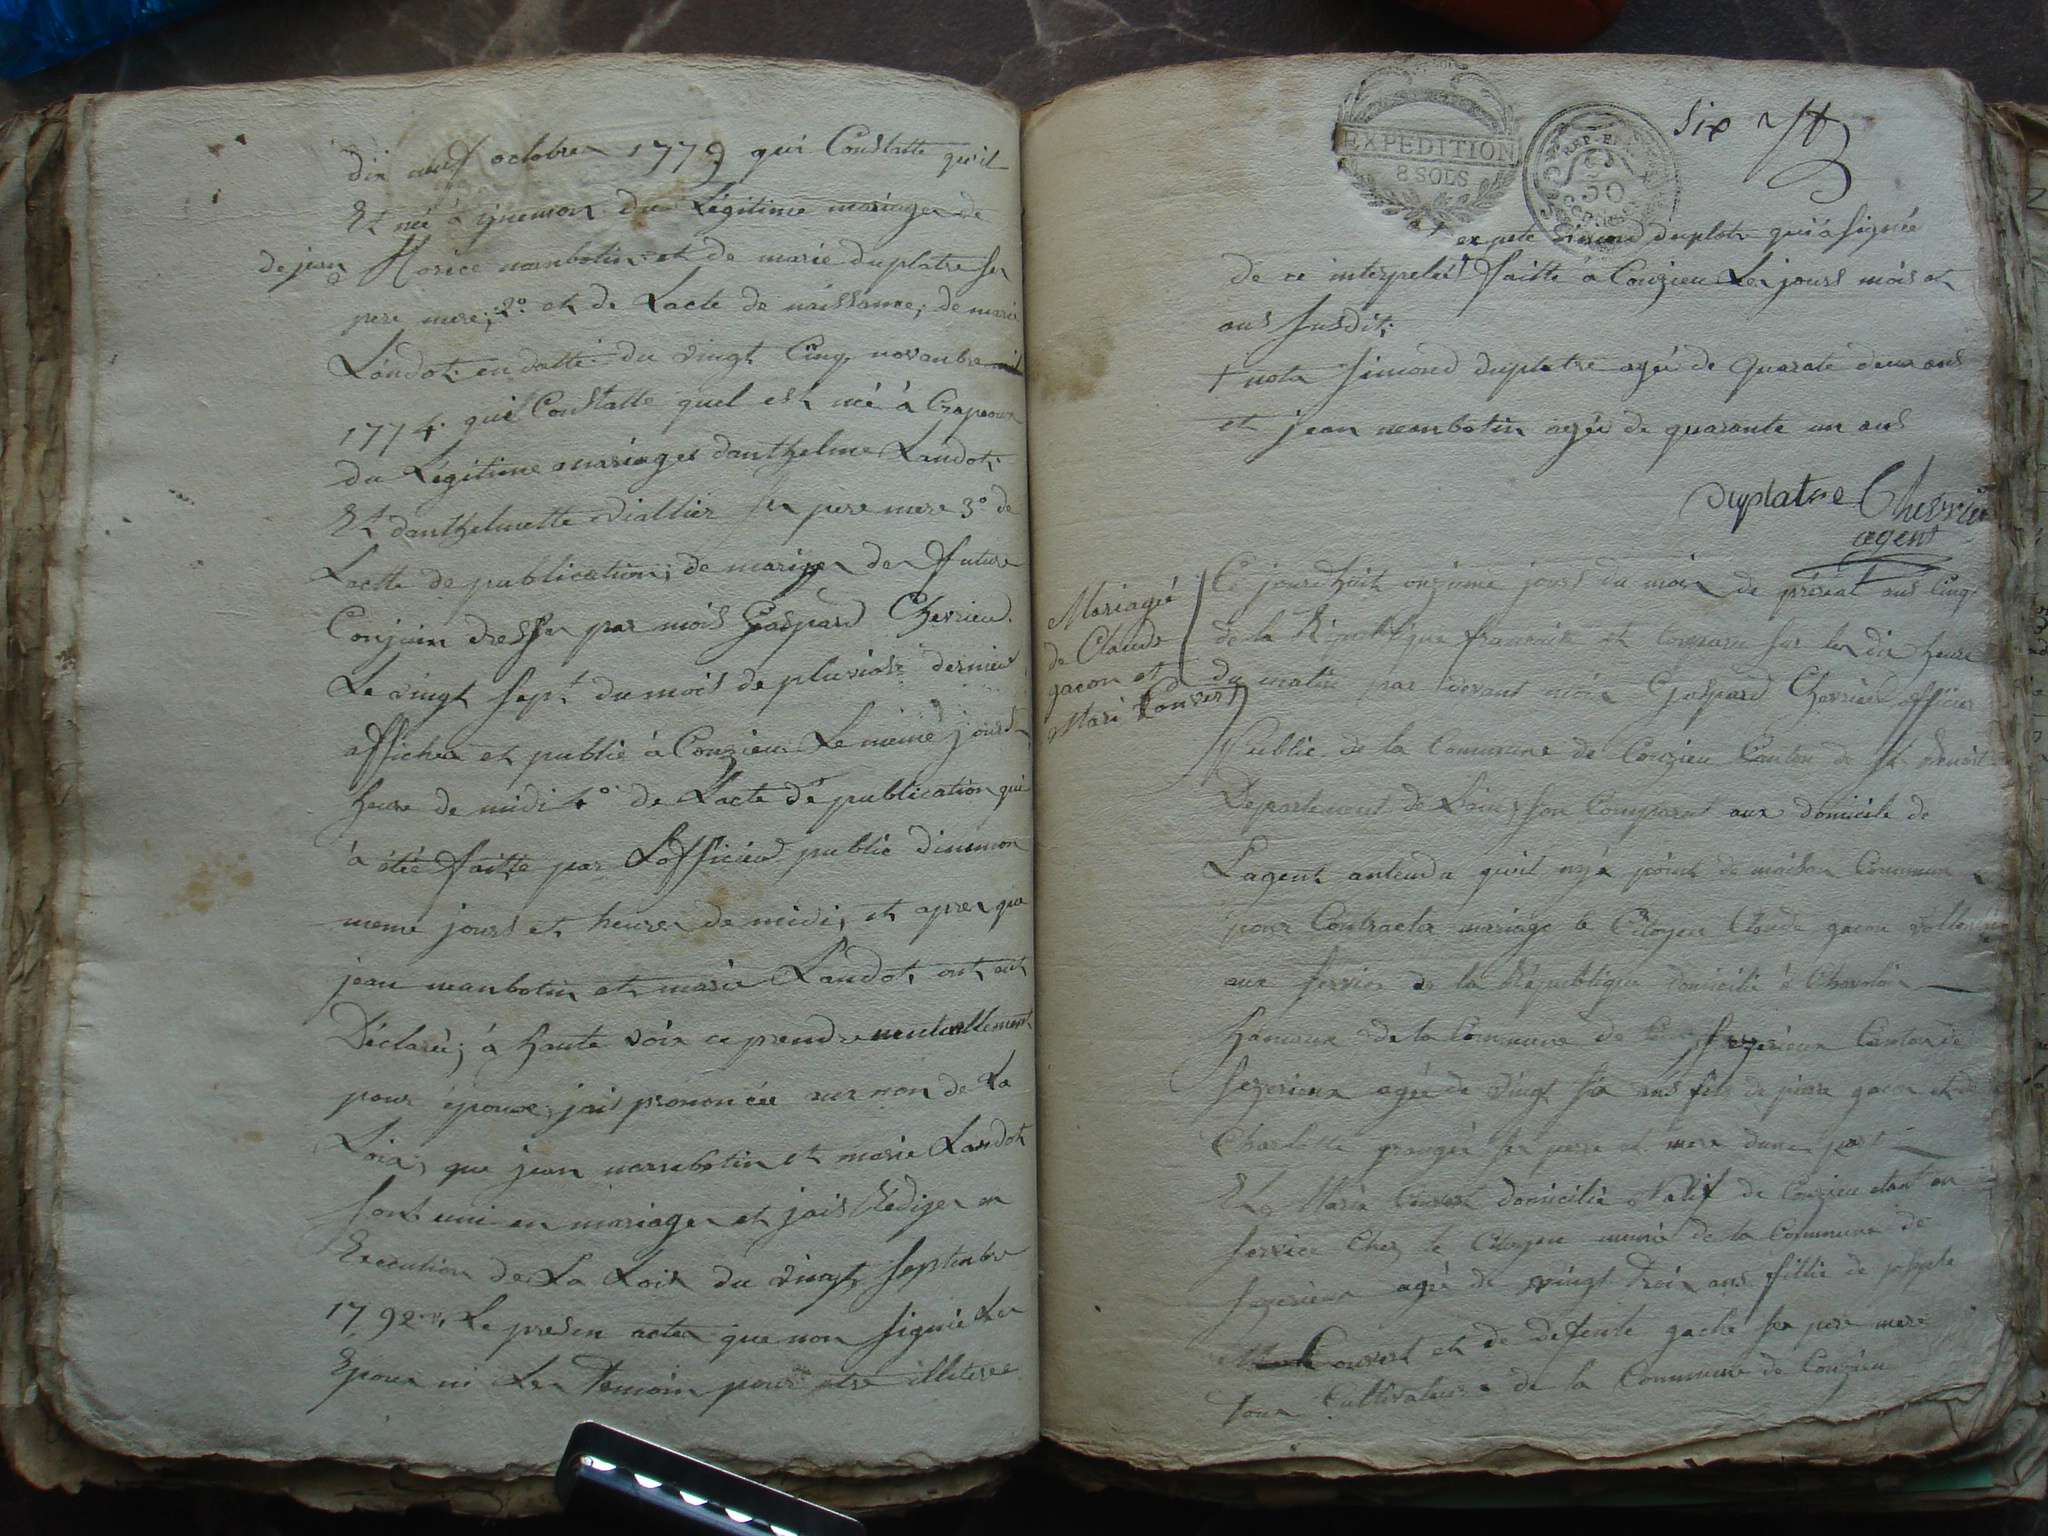 dix neuf octobre 1779 qui Constatte quil
Et né à du Légitime mariage de
de jean
Morice manbotin et de marie duplatre ses
pere mere; 2° et de Lacte de naissanse; de marie
Landot en datte du vingt Cinq novanbre
1774. qui Constatte quel est né à
du Légitime mariages danthelme Landot;
Et danthelmette vialtier ses pere mere 3° de
Lactte de publication; de mariages des future
Conjoin dresser par mois Gaspard Chevrieu
Le vingt sept du mois de pluviose dernier
afficher et publié à Conzieu Le meme jours
heure de midi 4° de Lacte de publication qui
à étée faitte par Lofficier publie
meme jours et heures de midi, et apres que
jean manbotin et marie Landot, ont
Déclaréé; à haute voix ce prendre mutuellement
pour épouse; jais prononcée aux non de La
Loix, que jean manbotin et marie Landot
sont uni en mariages et jais Rédiger en
Execution de La Loix du vingt septenbre
1792. Le presen actes que non signié Les
Epoux ni Les Temoin pour etre illitere
EXPEDITION
8 SOLS
REP. FRA
50
CENTIM
six
expete simond duplatr qui à signée
de ce interpelée faitte à Conzieu Les jours mois et
ans susdit;
+ nota simond duplatre agée de quarate deux ans
et jean manbotin agée de quarante un ans
duplatre Chevrieu
agent
Mariagé
de Claude
gacon et
Mari Convert
Ce jourdhuit onzieme jours du mois de préréal ans Cinq
de la République francaise et sur les dix heure
du matin par devant mois Gaspard Chevrieu officier
Public de la Commune de Conzieu Canton de St. Benoit
Departement de Lain, son Comparut aux domicile de
Lagent antendu quil ny a point de maison Commun
pour Contracter mariage le Citoyen Claude gacon
aux service de la République domicilié à
Hameaux de la Commune de Canton de
agée de vingt six ans fils de pierre gacon et de
Charlotte ses pere et mere dune part
Et Marie Convert domicilié Natif de Conzieu etant en
service Chez le Citoyen de la Commune de
agée de vingt trois ans fillie de
Convert et de defente gache ses pere mere
tous Cultivateurs de la Commune de Conzieu